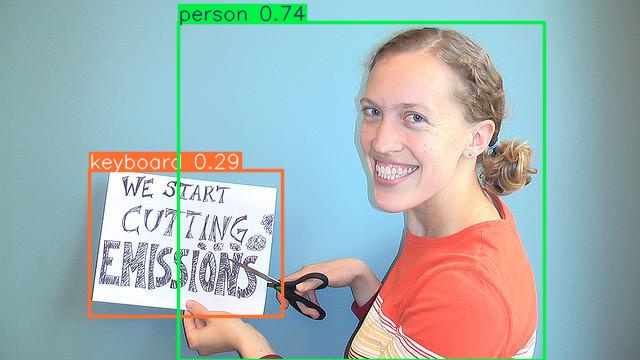 person 0.74
keyboard 0.29
WE START
CUTTING
EMISSIONS